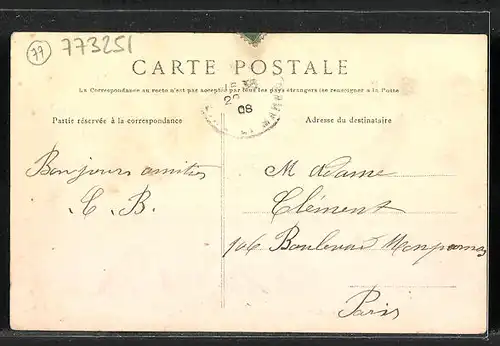 77 773251
CARTE POSTALE
La Correspondance au recto n'est pas acceptée par tous les pays étrangers (se renseigner à la Poste
20
08
Partie réservée à la correspondance
Adresse du destinataire
Bonjours amitiés
C. B.
Madame
Clément
106 Boulevard Monparnas
Paris